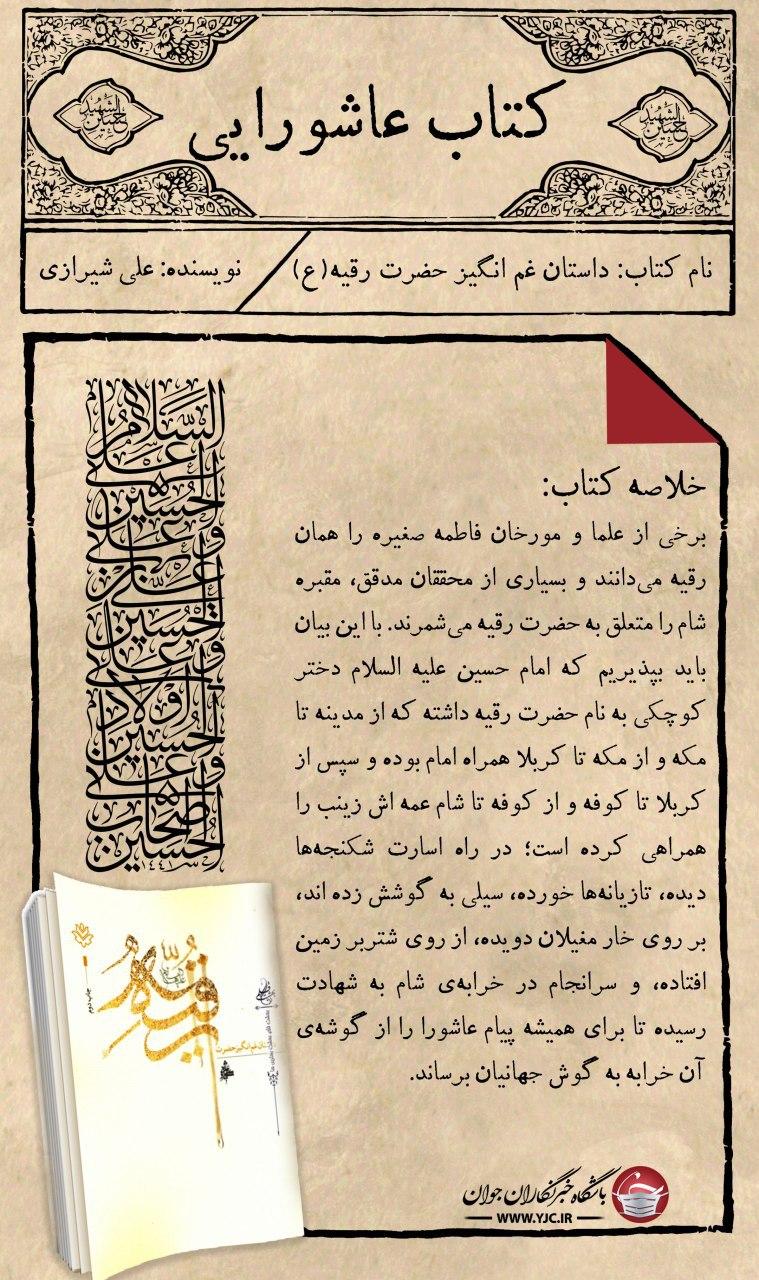 کتاب عاشورایی
الشهید
حسین
الشهید
حسین
نام کتاب: داستان غم انگیز حضرت رقیه(ع)
نویسنده: علی شیرازی
خلاصه کتاب:
برخی از علما و مورخان فاطمه صغیره را همان
رقیه می‌دانند و بسیاری از محققان مدقق، مقبره
شام را متعلق به حضرت رقیه می‌شمرند. با این بیان
باید بپذیریم که امام حسین علیه السلام دختر
کوچکی به نام حضرت رقیه داشته که از مدینه تا
مکه و از مکه تا کربلا همراه امام بوده و سپس از
کربلا تا کوفه و از کوفه تا شام عمه اش زینب را
همراهی کرده است؛ در راه اسارت شکنجه‌ها
دیده، تازیانه‌ها خورده، سیلی به گوشش زده اند،
بر روی خار مغیلان دویده، از روی شتربر زمین
افتاده، و سرانجام در خرابه‌ی شام به شهادت
رسیده تا برای همیشه پیام عاشورا را از گوشه‌ی
آن خرابه به گوش جهانیان برساند.
السلام
علی
الحسین
و علی
علی بن
الحسین
و علی
اولاد
الحسین
و علی
اصحاب
الحسین
۱۴۴۱
رقیه
چاپ دوم
باشگاه خبرنگاران جوان
WWW.YJC.IR